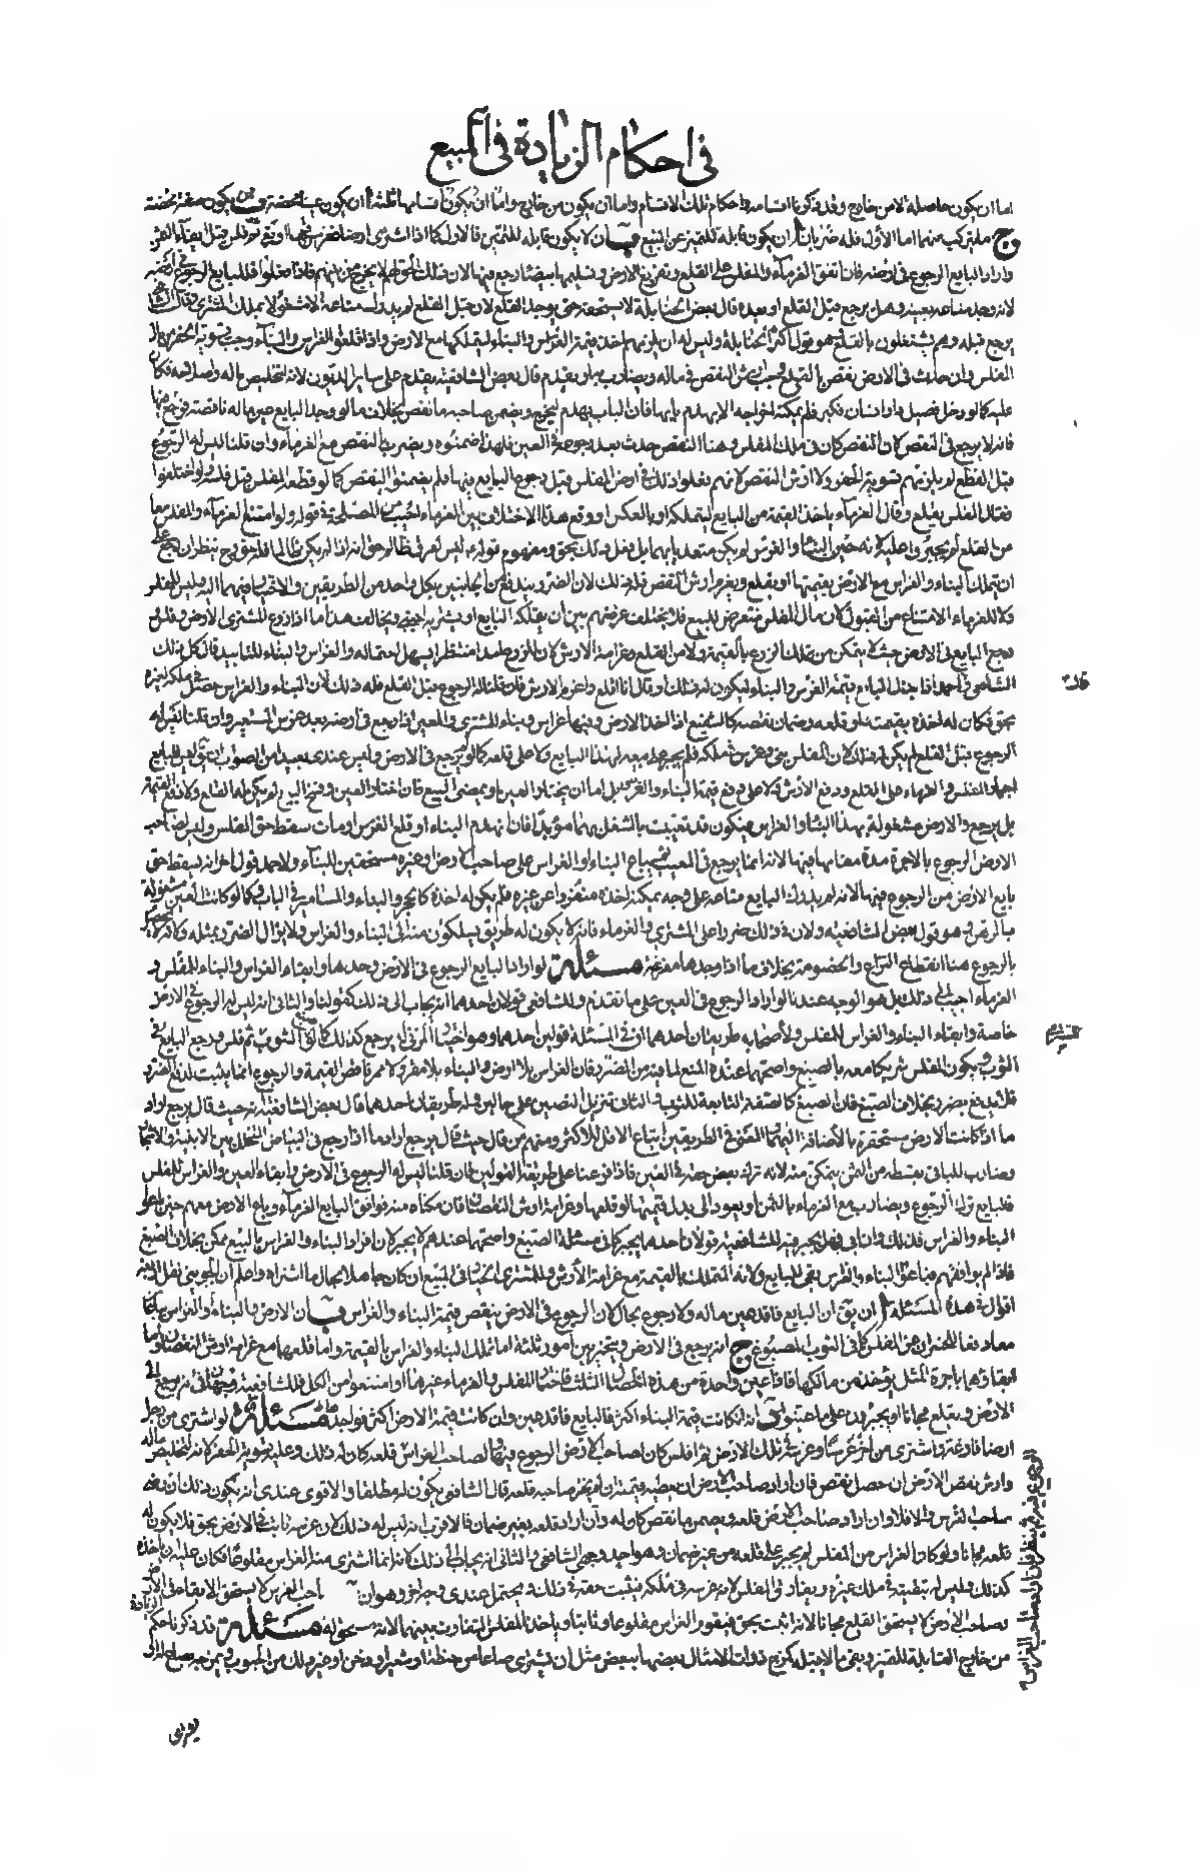 في احكام الزيادة في المبيع
اما ان يكون حاصلة لا من خارج وقد ذكرنا اقسامه واحكام تلك الاقسام واما ان يكون من خارج واما ان يكون اقسامها ثلثة ا ان يكون عينا محضة ب ان يكون صفة محضة
ج ما يتركب منهما اما الاول فله ضربان ا ان يكون قابلة للتميز عن المبيع ب ان لا يكون قابلة للتميز فالاول كما اذا اشترى ارضا فغرس فيها او بنى ثم فلس قبل ايفاء الثمن
واراد البايع الرجوع في ارضه فان اتفق الغرماء والمفلس على القلع وتفريغ الارض وتسليمها بيضاء رجع فيها لان ذلك الحق لهم لا يخرج عنهم فاذا فعلوا فللبايع الرجوع في ارضه
لانه وجد متاعه بعينه وهل يرجع قبل القلع او بعده قال بعض الحنابلة لا يستحقه حتى يوجد القلع لان قبل القلع لم يدرك متاعه الا مشغولا بملك المشتري وقال الشافعي
يرجع قبله وهم يشتغلون بالقلع وهو قول اكثر الحنابلة وليس له ان يلزمهم اخذ قيمة الغراس والبناء ليتملكها مع الارض واذا قلعوا الغراس والبناء وجب تسوية الحفر من مال
المفلس وان حدث في الارض نقص بالقلع وجب ارش النقص في ماله ويضارب به او يقدم قال بعض الشافعية يقدم على ساير الديون لانه لتخليص ماله واصلاحه فكان
عليه كما لو دخل فصيل دار انسان فكبر فلم يمكنه اخراجه الا بهدم بابها فان الباب يهدم ليخرج ويضمن صاحبه ما نقص بخلاف ما لو وجد البايع عين ماله ناقصة فرجع فيها
فانه لا يرجع في النقص لان النقص كان في ملك المفلس وهنا النقص حدث بعد رجوعه في العين فلهذا ضمنوه ويضرب بالنقص مع الغرماء وان قلنا ليس له الرجوع
قبل القطع لم يلزمهم تسوية الحفر ولا ارش النقص لانهم فعلوا ذلك في ارض المفلس قبل رجوع البايع فيها فلم يضمنوا النقص كما لو قطعه المفلس قبل فلسه ولو اختلفوا
فقال المفلس يقلع وقال الغرماء ياخذ القيمة من البايع ليتملكه او بالعكس او وقع هذا الاختلاف بين الغرماء اجيب من المصلحة في قوله ولو امتنع الغرماء والمفلس معا
من القلع لم يجبروا عليه لانه حين البناء والغرس لم يكن متعديا بهما بل فعل ذلك بحق ومفهوم قوله ليس لعرق ظالم حق انه اذا لم يكن ظالما فله حق وح ينظر ان رجع على
ان يتملك البناء والغراس مع الارض بقيمتها او يقلع ويغرم ارش النقص فله ذلك لان الضرر يندفع من الجانبين بكل واحد من الطريقين والاختيار فيهما اليه وليس للمفلس
ولا للغرماء الامتناع من القبول لان مال المفلس متعرض للبيع فلا يختلف غرضهم بين ان يتملكه البايع او يشتريه اجنبي ويخالف هذا ما اذا زرع المشتري الارض وفلس
رجع البايع في الارض حيث لا يتمكن من تملك الزرع بالقيمة ولا من القلع وغرامة الارش لان للزرع امدا منتظرا يسهل احتماله والغراس والبناء للتابيد قال كل ذلك
الشافعي واحمد اذا بذل البايع قيمة الغرس والبناء ليكون له ذلك او قال انا اقلع واغرم الارش فان قلنا له الرجوع قبل القلع فله ذلك لان البناء والغراس حصل في ملكه لغيره
بحق فكان له اخذه بقيمته او قلعه وضمان نقصه كالشفيع اذا اخذ الارض وفيها غراس وبناء للمشتري والمعير اذا رجع في ارضه بعد غرس المستعير وان قلنا ليس له
الرجوع قبل القلع لم يكن له ذلك لان المفلس بنى وغرس في ملكه فلم يجبر على بيعه لهذا البايع ولا على قلعه كما لو لم يرجع في الارض وليس عندي بعيدا من الصواب انه ليس للبايع
اجبار المفلس والغرماء على القلع ودفع الارش ولا على دفع قيمة البناء والغرس بل اما ان يختار العين او يمضي البيع فان اختار العين وفسخ البيع لم يكن له القلع ولا دفع القيمة
بل يرجع والارض مشغولة بهذا البناء والغراس فيكون قد تعينت بالشغل بهما مؤبدا فان انهدم البناء او قلع الغرس او مات سقط حق المفلس وليس لصاحب
الارض الرجوع بالاجرة مدة مقامها فيها لانه انما يرجع في المعيب بان يباع البناء او الغراس على صاحب الارض او غيره مستحقين للبقاء ولاحمد قول اخر انه يسقط حق
بايع الارض من الرجوع فيها لانه لم يدرك البايع متاعه على وجه يمكنه اخذه منفردا عن غيره فلم يكن له اخذه كالحجر والبناء والمسامير في الباب وكما لو كانت العين مشغولة
بالرهن وهو قول بعض الشافعية ولان في ذلك ضررا على المشتري والغرماء فانه لا يكون له طريق يسلكون منه الى البناء والغراس ولا يزال الضرر بمثله ولانه لا يحصل
بالرجوع هنا انقطاع النزاع والخصومة بخلاف ما اذا وجدها مفرغة مسئلة لو اراد البايع الرجوع في الارض وحدها وابقاء الغراس والبناء للمفلس و
الغرماء اجيب الى ذلك بل هو الوجه عندنا لو اراد الرجوع في العين على ما تقدم وللشافعي قولان احدهما انه يجاب الى ذلك كقولنا والثاني انه ليس له الرجوع في الارض
خاصة وابقاء البناء والغراس للمفلس ولاصحابه طريقان احدهما ان في المسئلة قولين احدهما وهو اختيار المزني انه يرجع كذلك كما لو صبغ الثوب ثم فلس رجع البايع في
الثوب ويكون المفلس شريكا معه بالصبغ واصحهما عنده المنع لما فيه من الضرر فان الغراس بلا ارض والبناء بلا مقر ولا ممر ناقص القيمة والرجوع انما يثبت لدفع الضرر
فلا يدفع بضرر بخلاف الصبغ فان الصبغ كالصفة التابعة للثوب والثاني تنزيل النصين على حالين وله طريقان احدهما قال بعض الشافعية انه حيث قال يرجع اراد
ما اذا كانت الارض مستحقرة بالاضافة اليهما والمعنى في الطريقين اتباع الاقل للاكثر ومنهم من قال حيث قال يرجع اراد ما اذا رجع في البياض المتخلل بين الابنية والاشجار
ويضارب للباقي بقسطه من الثمن يمكن منه لانه ترك بعض حقه في العين فاذا فرعنا على طريقة القولين فان قلنا ليس له الرجوع في الارض وابقاء العين والغراس للمفلس
فللبايع ترك الرجوع ويضارب مع الغرماء بالثمن او يعود الى بدل قيمتها او قلعها وغرامة ارش النقصان فان مكناه منه فوافق البايع الغرماء وباع الارض معهم حين باعوا
البناء والغراس فذلك وان ابى فهل يجبر فيه للشافعية قولان احدهما يجبر كما في مسئلة الصبغ واصحهما عندهم لا يجبر لان افراد البناء والغراس بالبيع ممكن بخلاف الصبغ
فاذا لم يوافقهم فباعوا البناء والغراس بقي للبايع ولاية التملك بالقيمة مع غرامة الارش وللمشتري الخيار في المبيع ان كان جاهلا بحال ما اشتراه واعلم ان الجويني نقل اربعة
اقوال في هذه المسئلة ا انه يق ان البايع فاقد عين ماله ولا رجوع بحال لان الرجوع في الارض ينقص قيمة البناء والغراس ب ان الارض والبناء او الغراس يباعان
معا دفعا للخسران عن المفلس كما في الثوب المصبوغ ج انه يرجع في الارض ويتخير بين امور ثلثة اما تملك البناء والغراس بالقيمة واما قلعهما مع غرامة ارش النقصان واما
ابقاؤهما باجرة المثل يؤخذ من مالكها فاذا عين واحدة من هذه الخصال الثلث فاختار المفلس والغرماء غيرها او امتنعوا من الكل فللشافعية وجهان في انه يرجع الى
الارض ويقلع مجانا او يجبرون على ما عينه د انه ان كانت قيمة البناء اكثر فالبايع فاقد عين وان كانت قيمة الارض اكثر فواجد مسئلة لو اشترى من رجل
ارضا فارغة واشترى من اخر غرسا وغرسه في تلك الارض ثم افلس كان لصاحب الارض الرجوع فيها ولصاحب الغراس قلعه كان له ذلك وعليه تسوية الحفر لانه لتخليص ماله
وارش نقص الارض ان حصل نقص فان اراد صاحب الارض ان يعطيه قيمته ان لم يختر صاحبه قلعه قال الشافعي يكون له مطلقا والاقوى عندي انه يكون ذلك ان رضي
صاحب الغرس والا فلا وان اراد صاحب الارض قلعه ويضمن ما نقص كان له وان اراد قلعه بغير ضمان فالاقرب انه ليس له ذلك لان غرسه ثابت في الارض بحق فلا يكون له
قلعه مجانا ولو كان الغراس من المفلس لم يجبر على قلعه من غير ضمان وهو احد وجهي الشافعي والثاني انه يجاب الى ذلك لانه انما اشترى منه الغراس مقلوعا فكان عليه ان ياخذه
كذلك وليس له تبقيته في ملك غيره ويفارق المفلس لانه غرسه في ملكه فيثبت حقه في ذلك ويحتمل عندي وجه اخر وهو ان صاحب الغرس لا يستحق الابقاء في الارض
وصاحب الارض لا يستحق القلع مجانا لانه اثبت بحق فيقوم الغراس مقلوعا وثابتا وياخذ المفلس التفاوت بينهما لانه مستحق له مسئلة قد ذكرنا حكم الزيادة
من خارج القابلة للتميز وبقي ما لا يقبله كمزج ذوات الامثال بعضها ببعض مثل ان يشتري صاعا من حنطة او شعير او دخن او غير ذلك من الحبوب ويمزجه بصاع له او